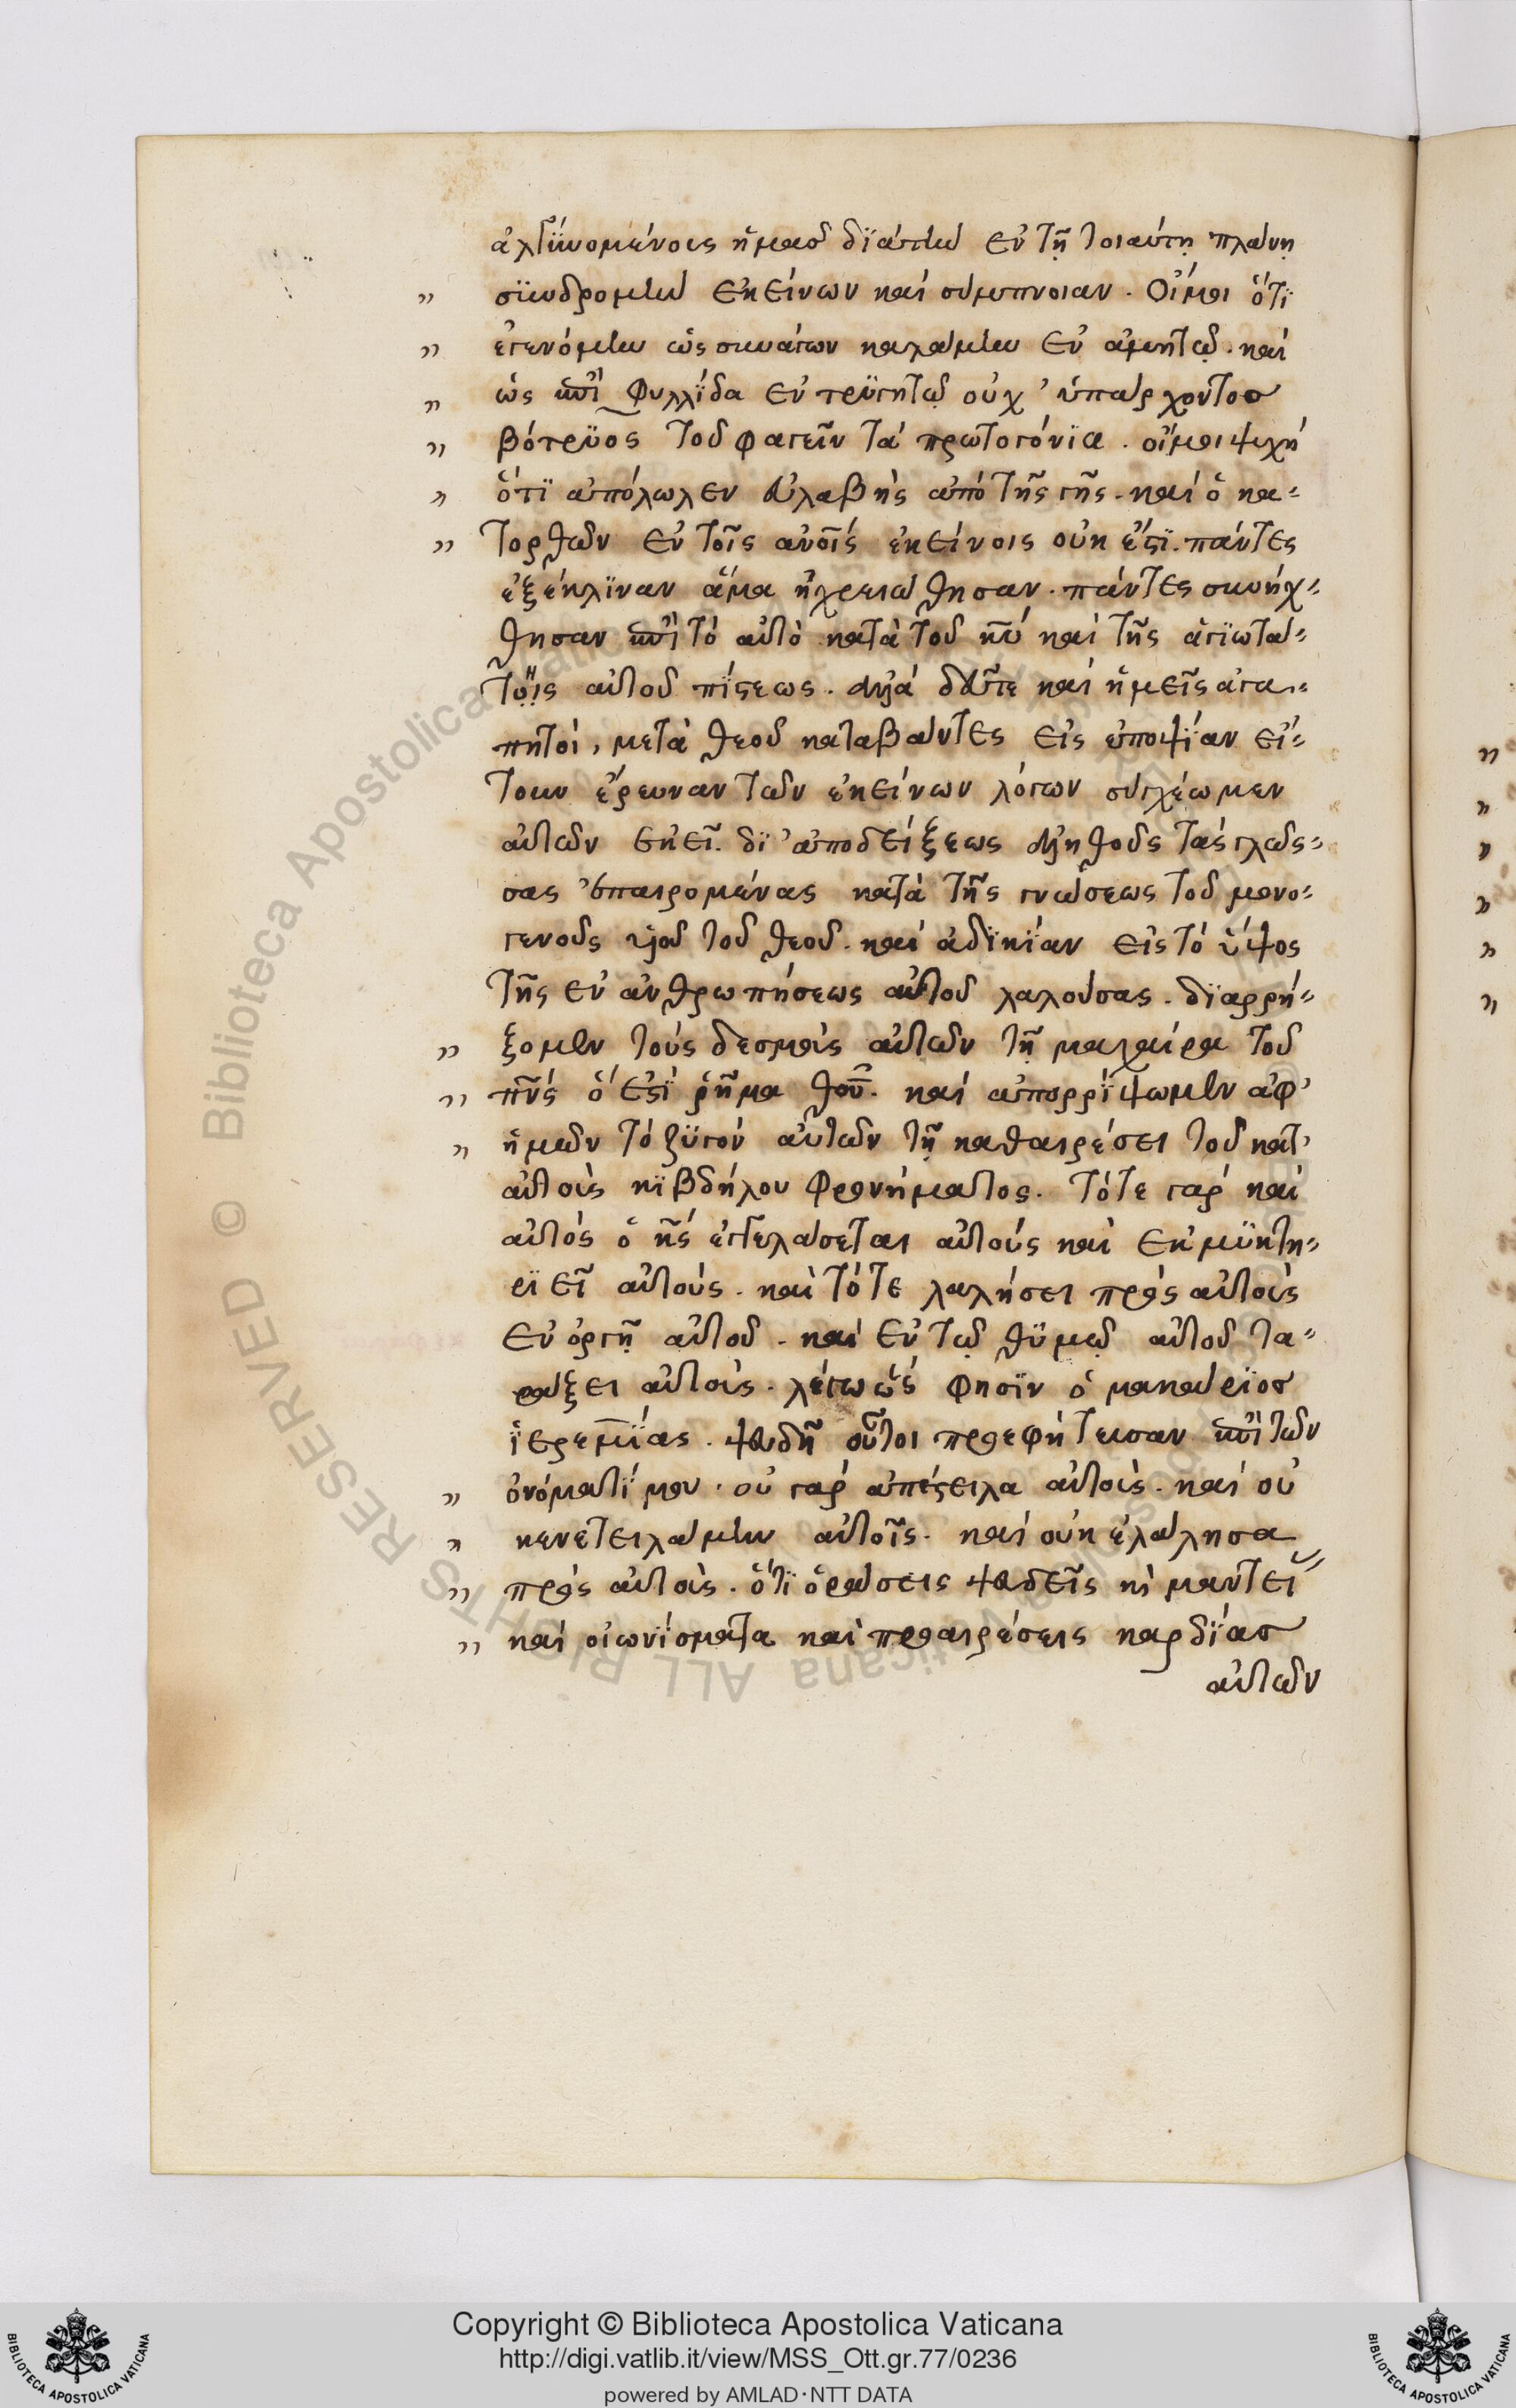 ἀλγυνομένοις ἡμᾶς διὰ τὴν ἐν τῇ τοιαύτῃ πλάνῃ
συνδρομὴν ἐκείνων καὶ σύμπνοιαν. Οἴμοι ὅτι
ἐγενόμην ὡς συνάγων καλάμην ἐν ἀμητῷ. καὶ
ὡς ἐπὶ φυλλίδα ἐν τρυγητῷ οὐχ' ὑπάρχοντος
βότρυος τοῦ φαγεῖν τὰ πρωτογόνια. οἴμοι ψυχή
ὅτι ἀπόλωλεν εὐλαβὴς ἀπὸ τῆς γῆς. καὶ ὁ κα-
τορθῶν ἐν τοῖς ἀνοῖς ἐκείνοις οὐκ ἔστι. πάντες
ἐξέκλιναν ἅμα ἠχρειώθησαν. πάντες συνήχ-
θησαν ἐπὶ τὸ αὐτὸ κατὰ τοῦ κυ καὶ τῆς ἁγιωτά-
της αὐτοῦ πίστεως. ἀλλὰ δεῦτε καὶ ἡμεῖς ἀγα-
πητοί, μετὰ θεοῦ καταβάντες εἰς ὑποψίαν εἴ-
τουν ἔρευναν τῶν ἐκείνων λόγων συγχέωμεν
αὐτῶν ἐκεῖ. δι' ἀποδείξεως ἀληθοῦς τὰς γλώσ-
σας ἐπαιρομένας κατὰ τῆς γνώσεως τοῦ μονο-
γενοῦς υἱοῦ τοῦ θεοῦ. καὶ ἀδικίαν εἰς τὸ ὕψος
τῆς ἐν ἀνθρωπήσεως αὐτοῦ λαλούσας. διαρρή-
ξομεν τοὺς δεσμοὺς αὐτῶν τῇ μαχαίρα τοῦ
πνς ὅ ἐστι ῥῆμα θοῦ. καὶ ἀπορρίψωμεν ἀφ'
ἡμῶν τὸ ζυγὸν αὐτῶν τῇ καθαιρέσει τοῦ κατ'
αὐτοὺς κιβδήλου φρονήματος. τότε γὰρ καὶ
αὐτὸς ὁ κς ἐγγελάσεται αὐτοὺς καὶ ἐκμυκτη-
ριεῖ αὐτούς. καὶ τότε λαλήσει πρὸς αὐτοὺς
ἐν ὀργῇ αὐτοῦ. καὶ ἐν τῷ θυμῷ αὐτοῦ τα-
ράξει αὐτούς. λέγω ὥς φησιν ὁ μακάριος
ἱερεμίας. ψευδῆ οὗτοι προεφήτευσαν ἐπὶ τῶν
ὀνόματί μου. οὐ γὰρ ἀπέστειλα αὐτούς. καὶ οὐ
κενετειλάμην αὐτοῖς. καὶ οὐκ ἐλάλησα
πρὸς αὐτούς. ὅτι ὁράσεις ψευδεῖς κὶ μαντεί
καὶ οἰωνίσματα καὶ προαιρέσεις καρδίας
αὐτῶν
Copyright © Biblioteca Apostolica Vaticana
http://digi.vatlib.it/view/MSS_Ott.gr.77/0236
powered by AMLAD·NTT DATA